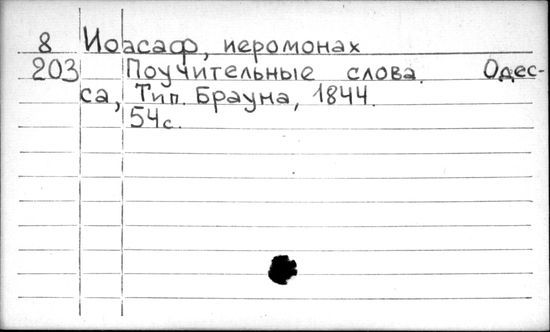 8 Иоасаф, иеромонах
203 Поучительные слова. Одес-
са, Тип. Брауна, 1844.
54с.